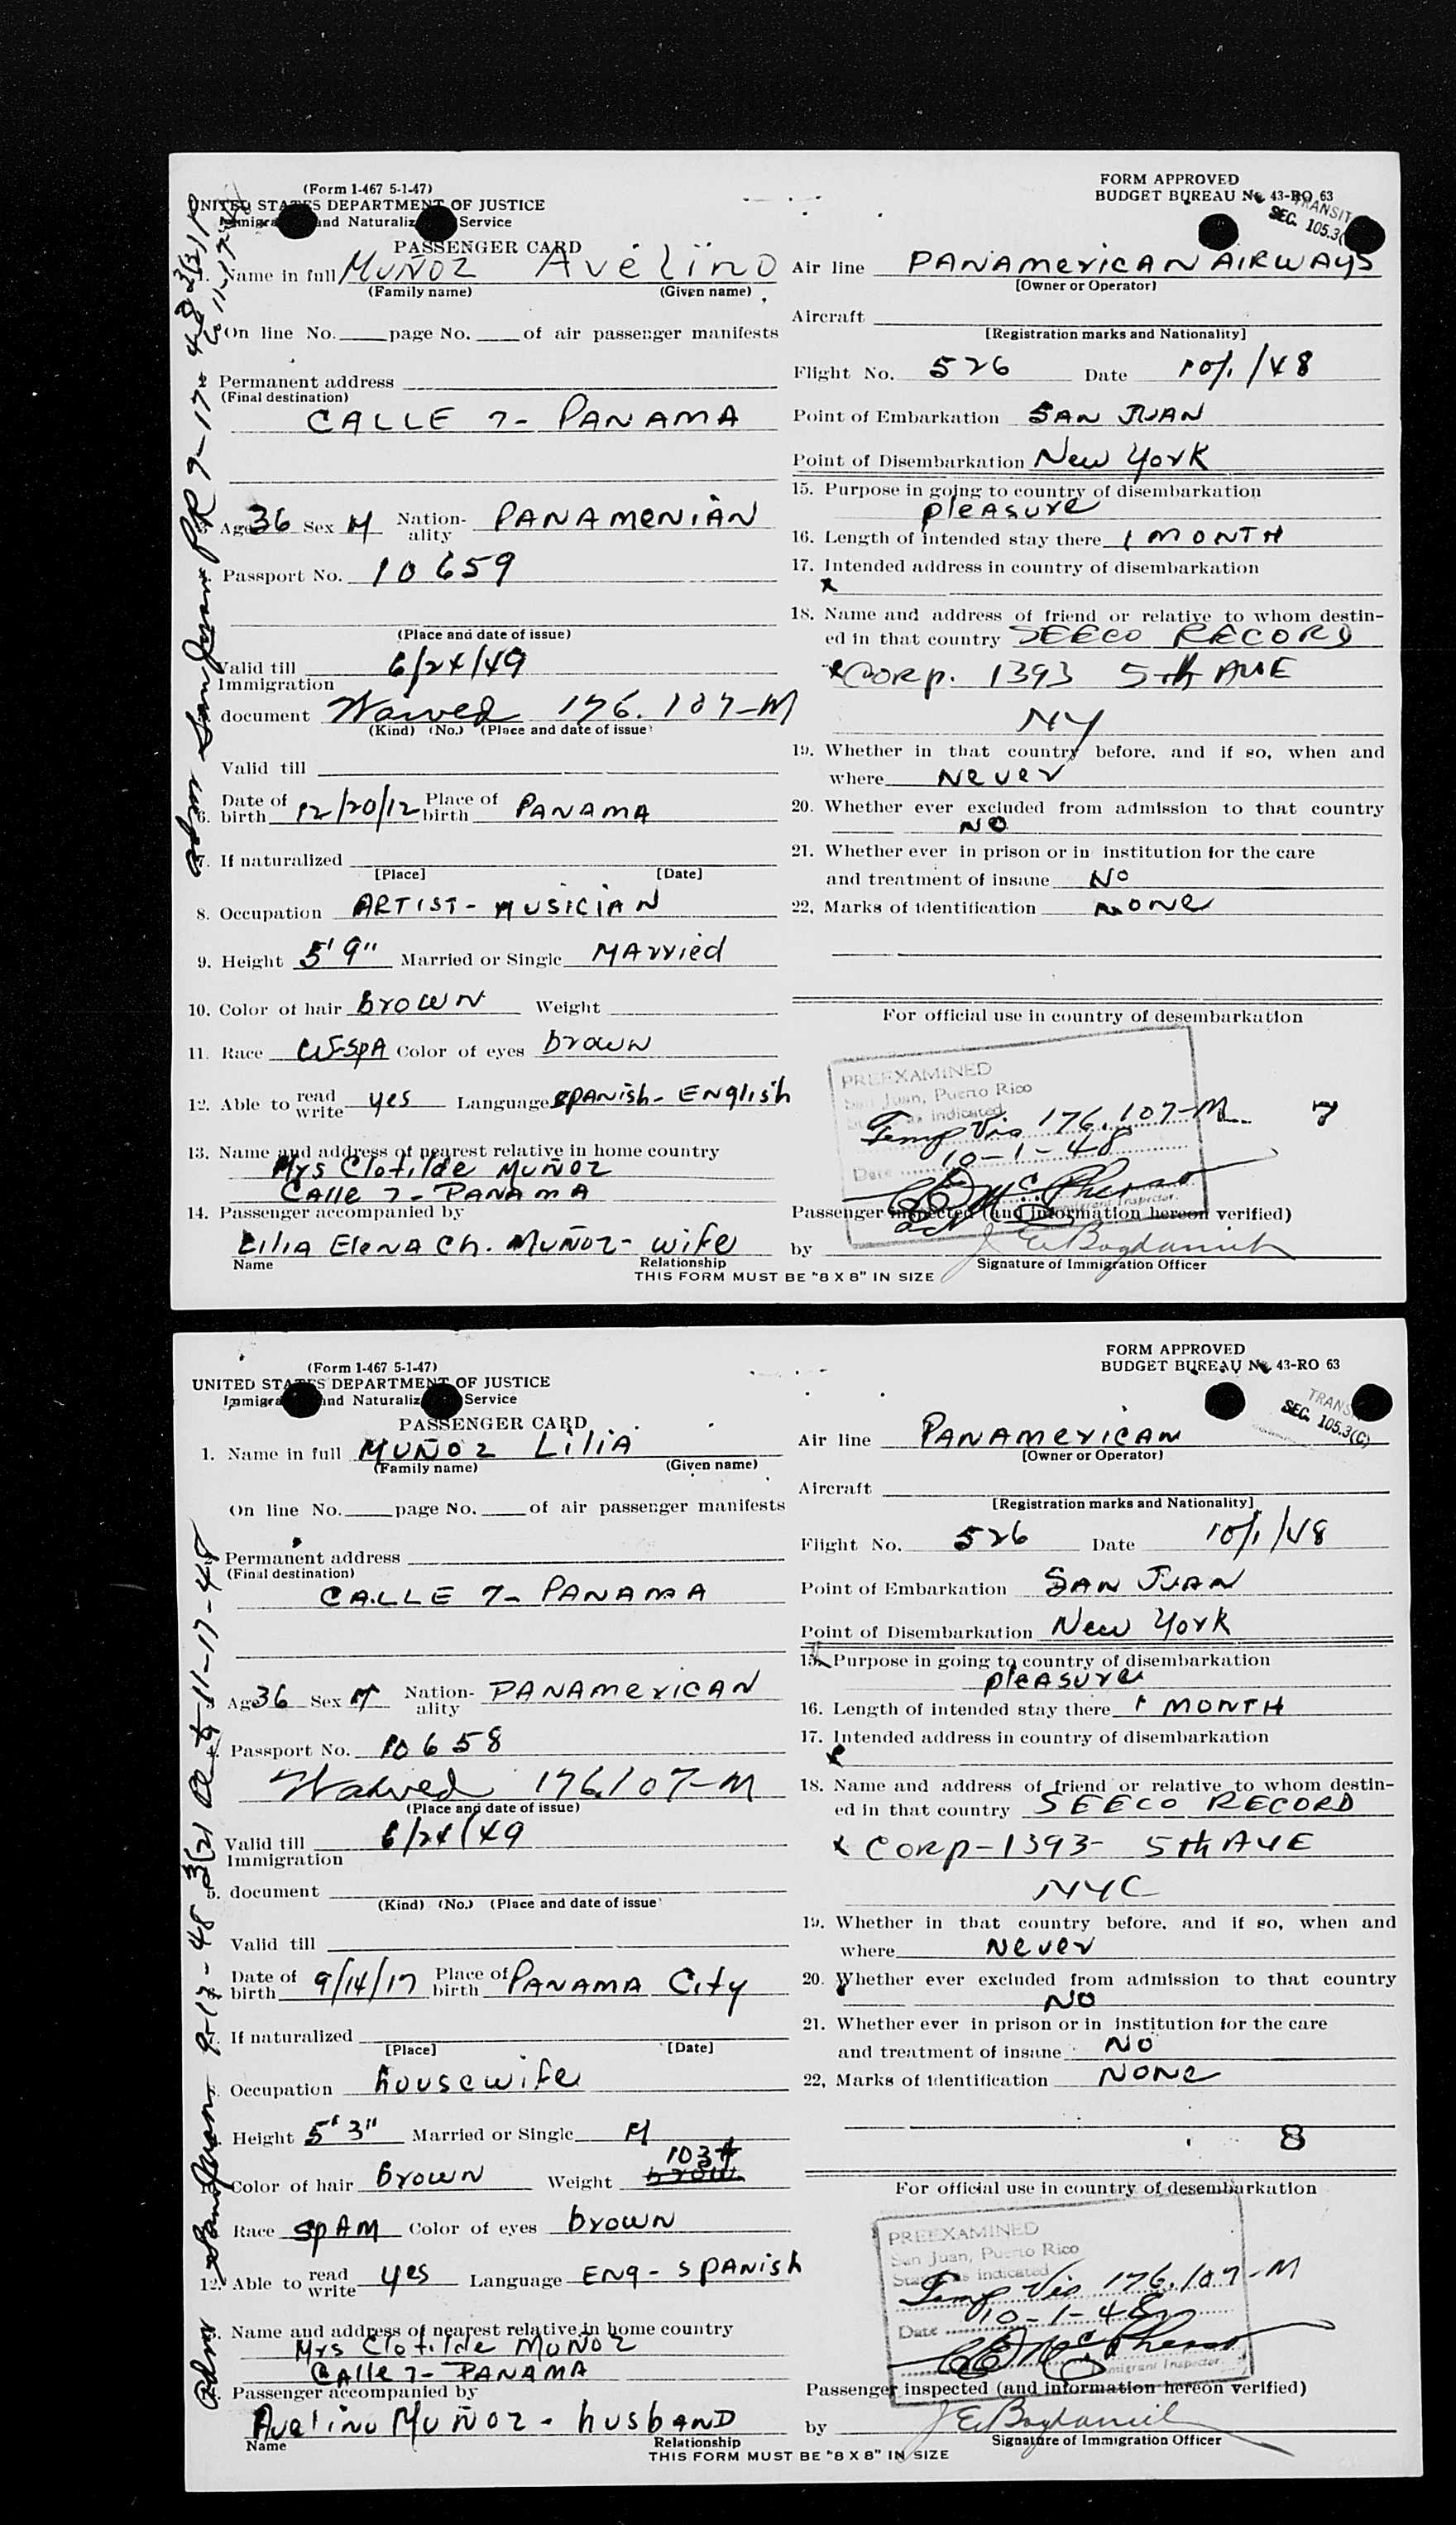 (Form 1-467 5-1-47)
UNITED STATES DEPARTMENT OF JUSTICE
and Naturaliz Service
PASSENGER CARD
1. Name in full MUÑOZ Avelino
(Family name) (Given name)
On line No. page No. of air passenger manifests
Permanent address
(Final destination)
CALLE 7- PANAMA
Age 36 Sex M Nation-ality PANAMENIAN
Passport No. 10659
(Place and date of issue)
Valid till 6/24/49
Immigration
document Waived 176.107-M
(Kind) (No.) (Place and date of issue)
Valid till
6. Date of birth 12/20/12 Place of birth PANAMA
7. If naturalized
[Place] [Date]
8. Occupation ARTIST- MUSICIAN
9. Height 5'9" Married or Single MArried
10. Color of hair brown Weight
11. Race Color of eyes brown
12. Able to read write yes Language SPANish- ENglish
13. Name and address of nearest relative in home country
Mrs Clotilde MUÑOZ
CAlle 7- PANAMA
14. Passenger accompanied by
LiliA ElenA Ch. MUÑOZ- wife
Name Relationship
THIS FORM MUST BE "8 X 8" IN SIZE
Adm San Juan PR 9-17-48 3(2)
FORM APPROVED
BUDGET BUREAU No. 43-RO 63
TRANSIT
SEC. 105.3(
Air line PANAmericAN AIRWAys
[Owner or Operator]
Aircraft
[Registration marks and Nationality]
Flight No. 526 Date 10/1/48
Point of Embarkation SAN JUAN
Point of Disembarkation New York
15. Purpose in going to country of disembarkation
pleAsure
16. Length of intended stay there 1 MONTH
17. Intended address in country of disembarkation
x
18. Name and address of friend or relative to whom destin-
ed in that country SEECO RECORD
x Corp. 1393 5th AVE
NY
19. Whether in that country before, and if so, when and
where Never
20. Whether ever excluded from admission to that country
NO
21. Whether ever in prison or in institution for the care
and treatment of insane No
22, Marks of identification None
For official use in country of desembarkation
PREEXAMINED
San Juan, Puerto Rico
Status as indicated
Temp Vis 176.107-M
7
Date 10-1-48
Passenger inspected (and information hereon verified)
by
Signature of Immigration Officer
(Form 1-467 5-1-47)
UNITED STATES DEPARTMENT OF JUSTICE
Immigra and Naturaliz Service
PASSENGER CARD
1. Name in full MUÑOZ LiliA
(Family name) (Given name)
On line No. page No. of air passenger manifests
Permanent address
(Final destination)
CALLE 7- PANAMA
Age 36 Sex Nation-ality PANAmericAN
4. Passport No. 10658
Waived 176.107-M
(Place and date of issue)
Valid till 6/24/49
Immigration
5. document
(Kind) (No.) (Place and date of issue)
Valid till
Date of birth 9/14/17 Place of birth PANAMA City
If naturalized
[Place] [Date]
Occupation housewife
Height 5'3" Married or Single M
103#
Color of hair Brown Weight brow
Race SPAM Color of eyes brown
12. Able to read write yes Language ENg- SPANish
Name and address of nearest relative in home country
Mrs Clotilde MUÑOZ
CAlle 7- PANAMA
Passenger accompanied by
Avelino MUÑOZ- husbAND
Name Relationship
THIS FORM MUST BE "8 X 8" IN SIZE
Adm San Juan 9-17-48 3(2) 11-17-48
FORM APPROVED
BUDGET BUREAU No. 43-RO 63
TRANS
SEC. 105.3(C)
Air line PANAmericAN
[Owner or Operator]
Aircraft
[Registration marks and Nationality]
Flight No. 526 Date 10/1/48
Point of Embarkation SAN JUAN
Point of Disembarkation New York
15. Purpose in going to country of disembarkation
pleAsure
16. Length of intended stay there 1 MONTH
17. Intended address in country of disembarkation
x
18. Name and address of friend or relative to whom destin-
ed in that country SEECO RECORD
x Corp-1393- 5th AVE
NYC
19. Whether in that country before, and if so, when and
where Never
20. Whether ever excluded from admission to that country
NO
21. Whether ever in prison or in institution for the care
and treatment of insane NO
22, Marks of identification NONe
8
For official use in country of desembarkation
PREEXAMINED
San Juan, Puerto Rico
Status as indicated
Temp Vis 176.107-M
Date 10-1-48
Immigrant Inspector.
Passenger inspected (and information hereon verified)
by
Signature of Immigration Officer